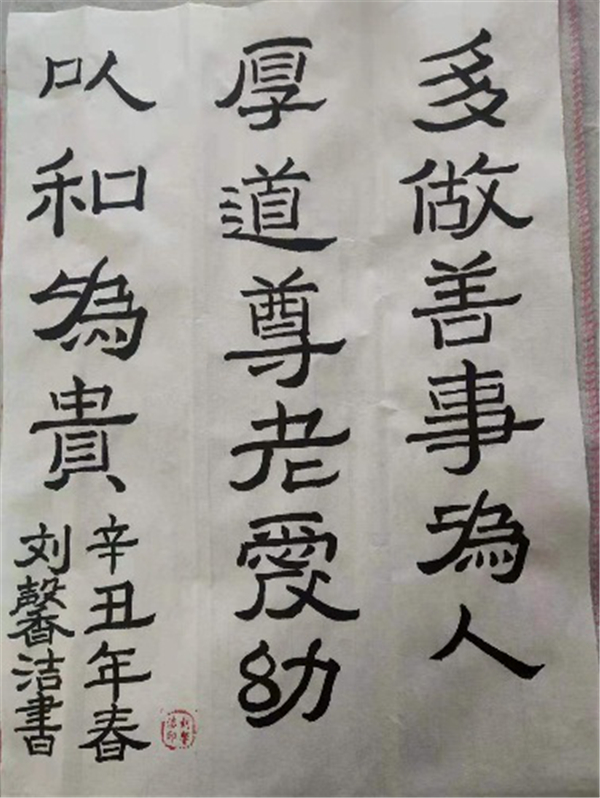 多做善事為人
厚道尊老爱幼
以和為貴
辛丑年春
刘馨洁書